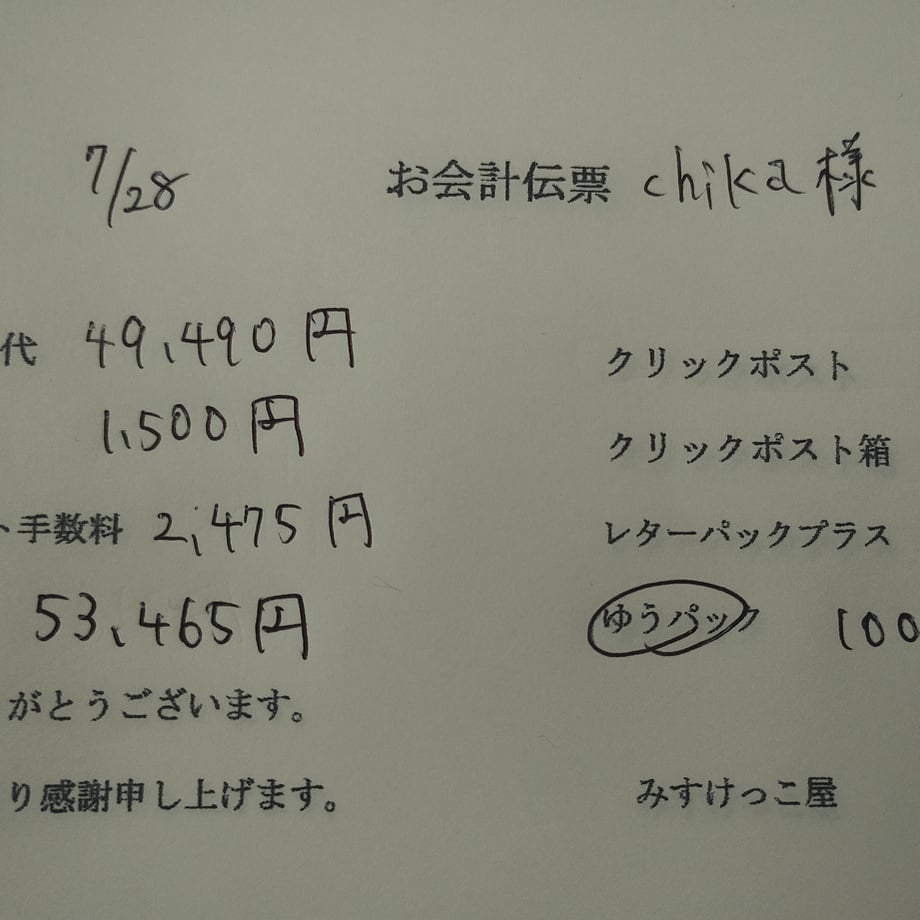 7/28 お会計伝票 chika様
代 49,490円
クリックポスト
1,500円
クリックポスト箱
ト手数料 2,475円
レターパックプラス
53,465円
ゆうパック 100
がとうございます。
り感謝申し上げます。
みすけっこ屋